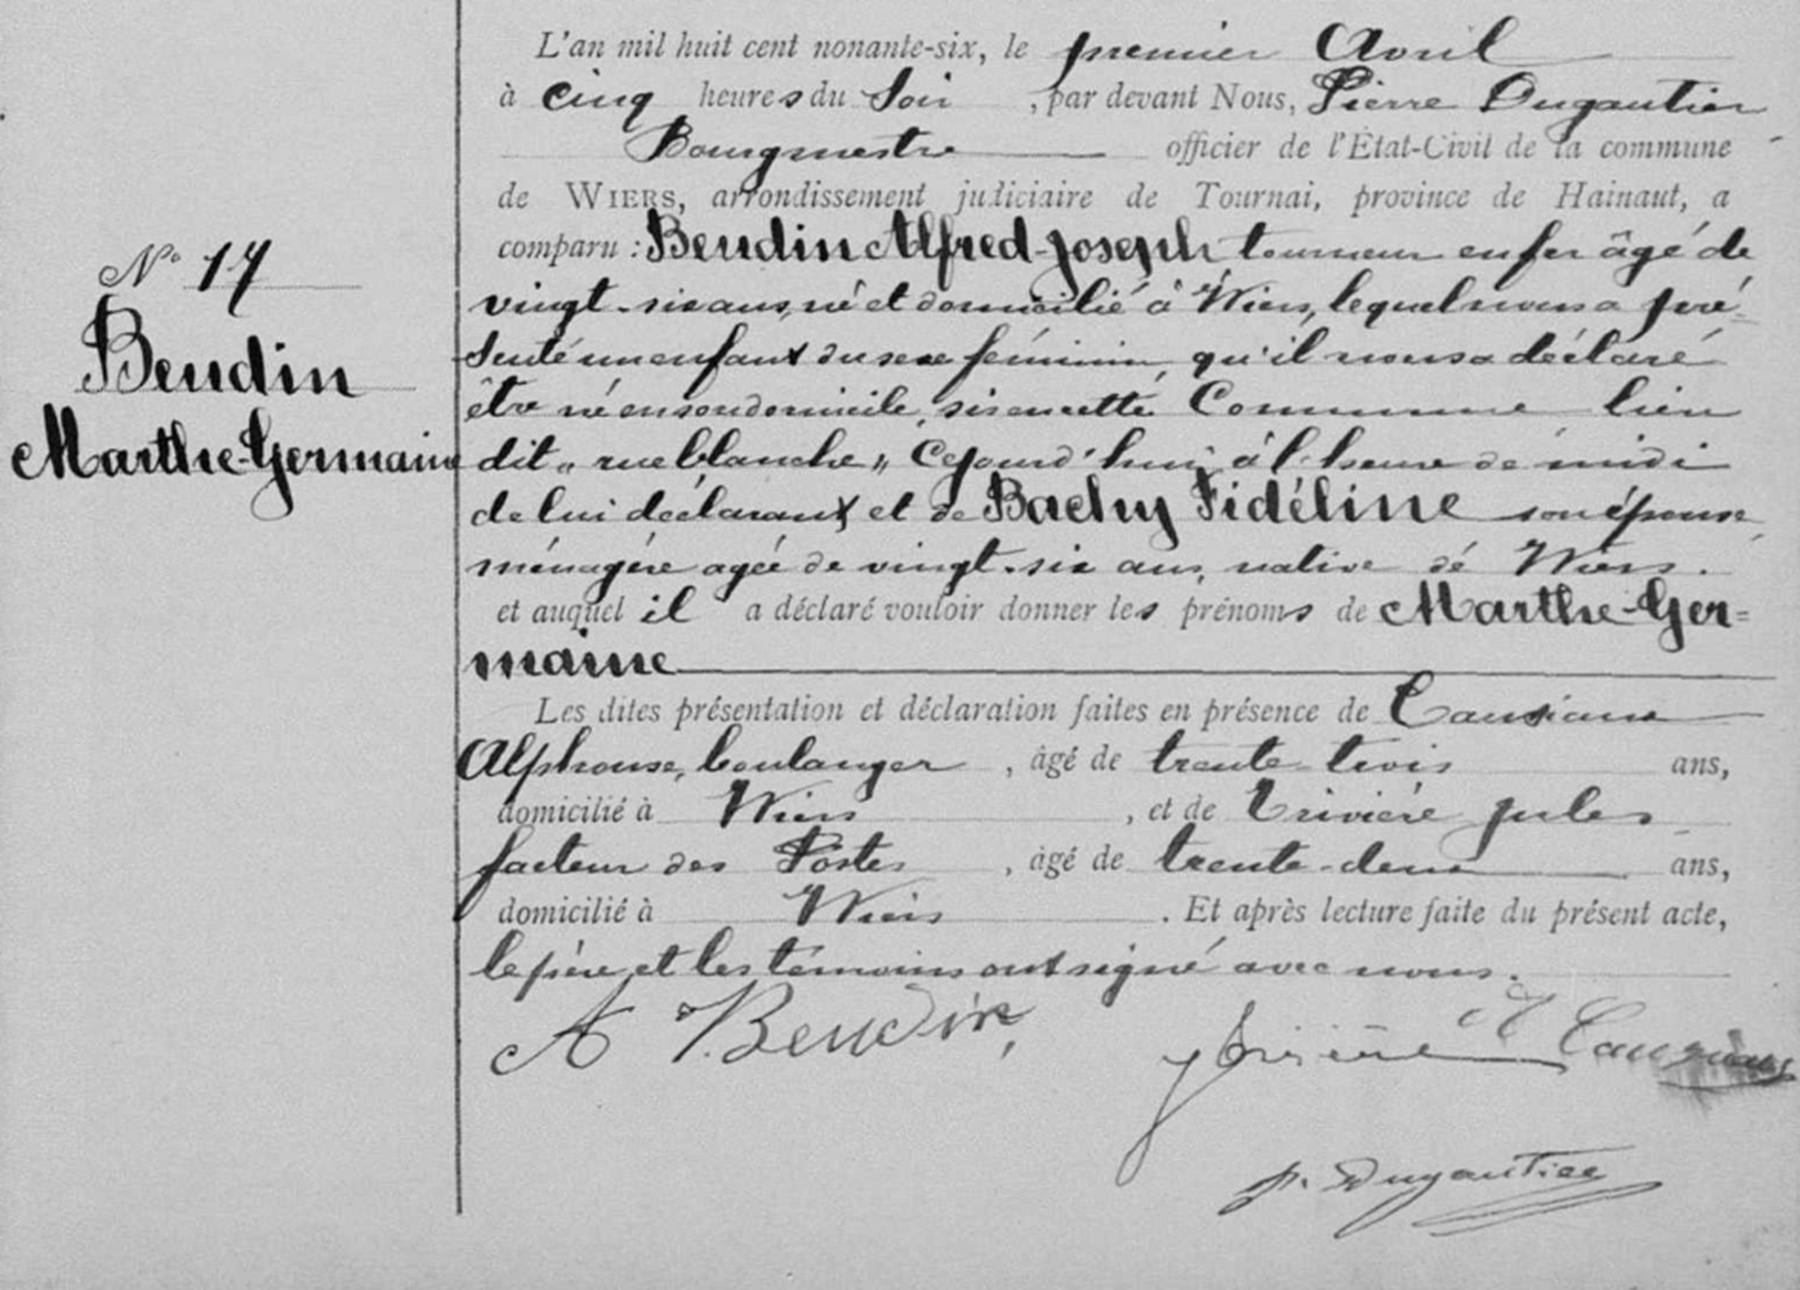 L'an mil huit cent nonante-six, le premier Avril
à cinq heures du soir, par devant Nous, Pierre Dugautier
Bourgmestre officier de l'État-Civil de la commune
de WIERS, arrondissement judiciaire de Tournai, province de Hainaut, a
comparu : Beudin Alfred-Joseph tourneur en fer âgé de
vingt-six ans, né et domicilié à Wiers, lequel nous a pré-
senté un enfant du sexe féminin, qu'il nous a déclaré
être né en son domicile, sis en cette Commune lieu
dit „ rue blanche „ Cejourd'hui à l'heure de midi
de lui déclarant et de Bachy Fidéline son épouse,
ménagère agée de vingt-six ans, native de Wiers.
et auquel il a déclaré vouloir donner les prénoms de Marthe-Ger=
maine
Les dites présentation et déclaration faites en présence de
Alphonse, boulanger, âgé de trente-trois ans,
domicilié à Wiers, et de Trivière Jules
facteur des Postes, âgé de trente-deux ans,
domicilié à Wiers. Et après lecture faite du présent acte,
le père et les témoins ont signé avec nous.
N° 17
Beudin
Marthe-Germaine
A Beudin,
J Trivière
P. Dugautier